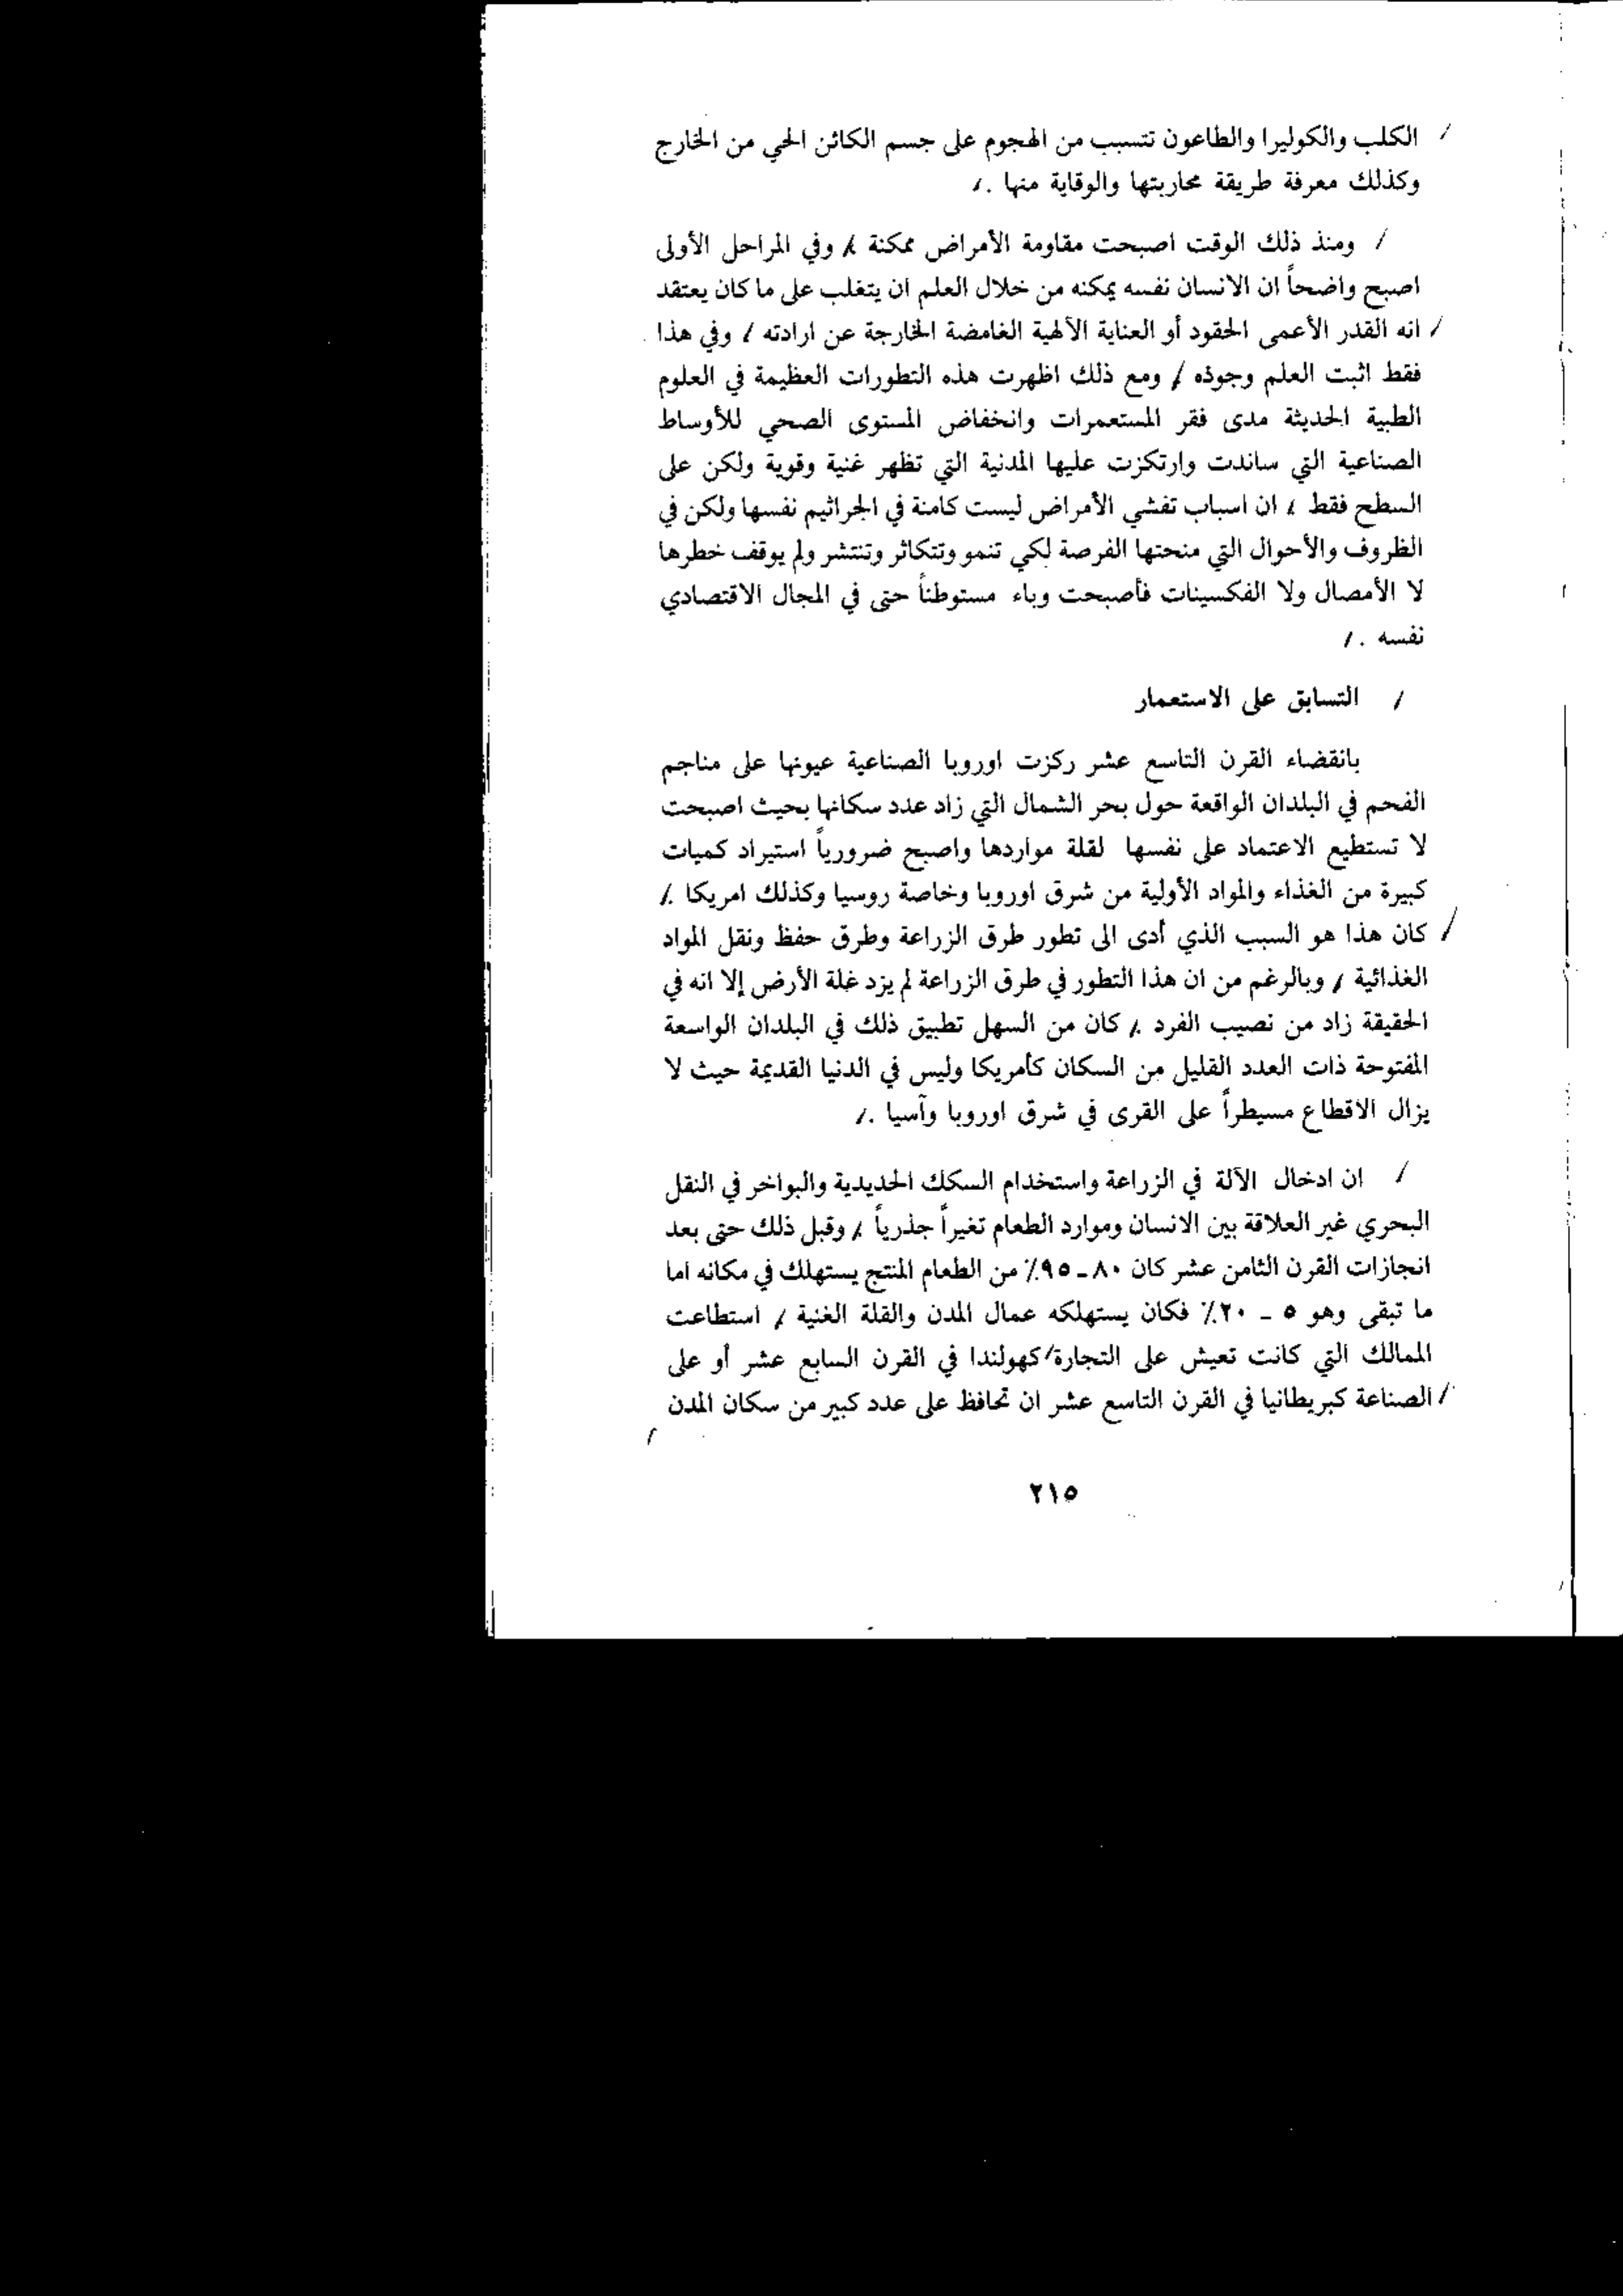 الكلب والكوليرا والطاعون تتسبب من الهجوم على جسم الكائن الحي من الخارج
وكذلك معرفة طريقة محاربتها والوقاية منها .
ومنذ ذلك الوقت اصبحت مقاومة الأمراض ممكنة . وفي المراحل الأولى
اصبح واضحاً ان الانسان نفسه يمكنه من خلال العلم ان يتغلب على ما كان يعتقد
انه القدر الأعمى الحقود أو العناية الآلهية الغامضة الخارجة عن ارادته . وفي هذا
فقط اثبت العلم وجوده . ومع ذلك اظهرت هذه التطورات العظيمة في العلوم
الطبية الحديثة مدى فقر المستعمرات وانخفاض المستوى الصحي للأوساط
الصناعية التي ساندت وارتكزت عليها المدنية التي تظهر غنية وقوية ولكن على
السطح فقط . ان اسباب تفشي الأمراض ليست كامنة في الجراثيم نفسها ولكن في
الظروف والأحوال التي منحتها الفرصة لكي تنمو وتتكاثر وتنتشر ولم يوقف خطرها
لا الأمصال ولا الفكسينات فأصبحت وباء مستوطناً حتى في المجال الاقتصادي
نفسه .
التسابق على الاستعمار
بانقضاء القرن التاسع عشر ركزت اوروبا الصناعية عيونها على مناجم
الفحم في البلدان الواقعة حول بحر الشمال التي زاد عدد سكانها بحيث اصبحت
لا تستطيع الاعتماد على نفسها لقلة مواردها واصبح ضرورياً استيراد كميات
كبيرة من الغذاء والمواد الأولية من شرق اوروبا وخاصة روسيا وكذلك امريكا .
كان هذا هو السبب الذي أدى الى تطور طرق الزراعة وطرق حفظ ونقل المواد
الغذائية . وبالرغم من ان هذا التطور في طرق الزراعة لم يزد غلة الأرض إلا انه في
الحقيقة زاد من نصيب الفرد . كان من السهل تطبيق ذلك في البلدان الواسعة
المفتوحة ذات العدد القليل من السكان كأمريكا وليس في الدنيا القديمة حيث لا
يزال الاقطاع مسيطراً على القرى في شرق اوروبا وآسيا .
ان ادخال الآلة في الزراعة واستخدام السكك الحديدية والبواخر في النقل
البحري غير العلاقة بين الانسان وموارد الطعام تغيراً جذرياً . وقبل ذلك حتى بعد
انجازات القرن الثامن عشر كان ٨٠ ـ ٩٥٪ من الطعام المنتج يستهلك في مكانه اما
ما تبقى وهو ٥ ـ ٢٠٪ فكان يستهلكه عمال المدن والقلة الغنية . استطاعت
الممالك التي كانت تعيش على التجارة كهولندا في القرن السابع عشر أو على
الصناعة كبريطانيا في القرن التاسع عشر ان تحافظ على عدد كبير من سكان المدن
٢١٥